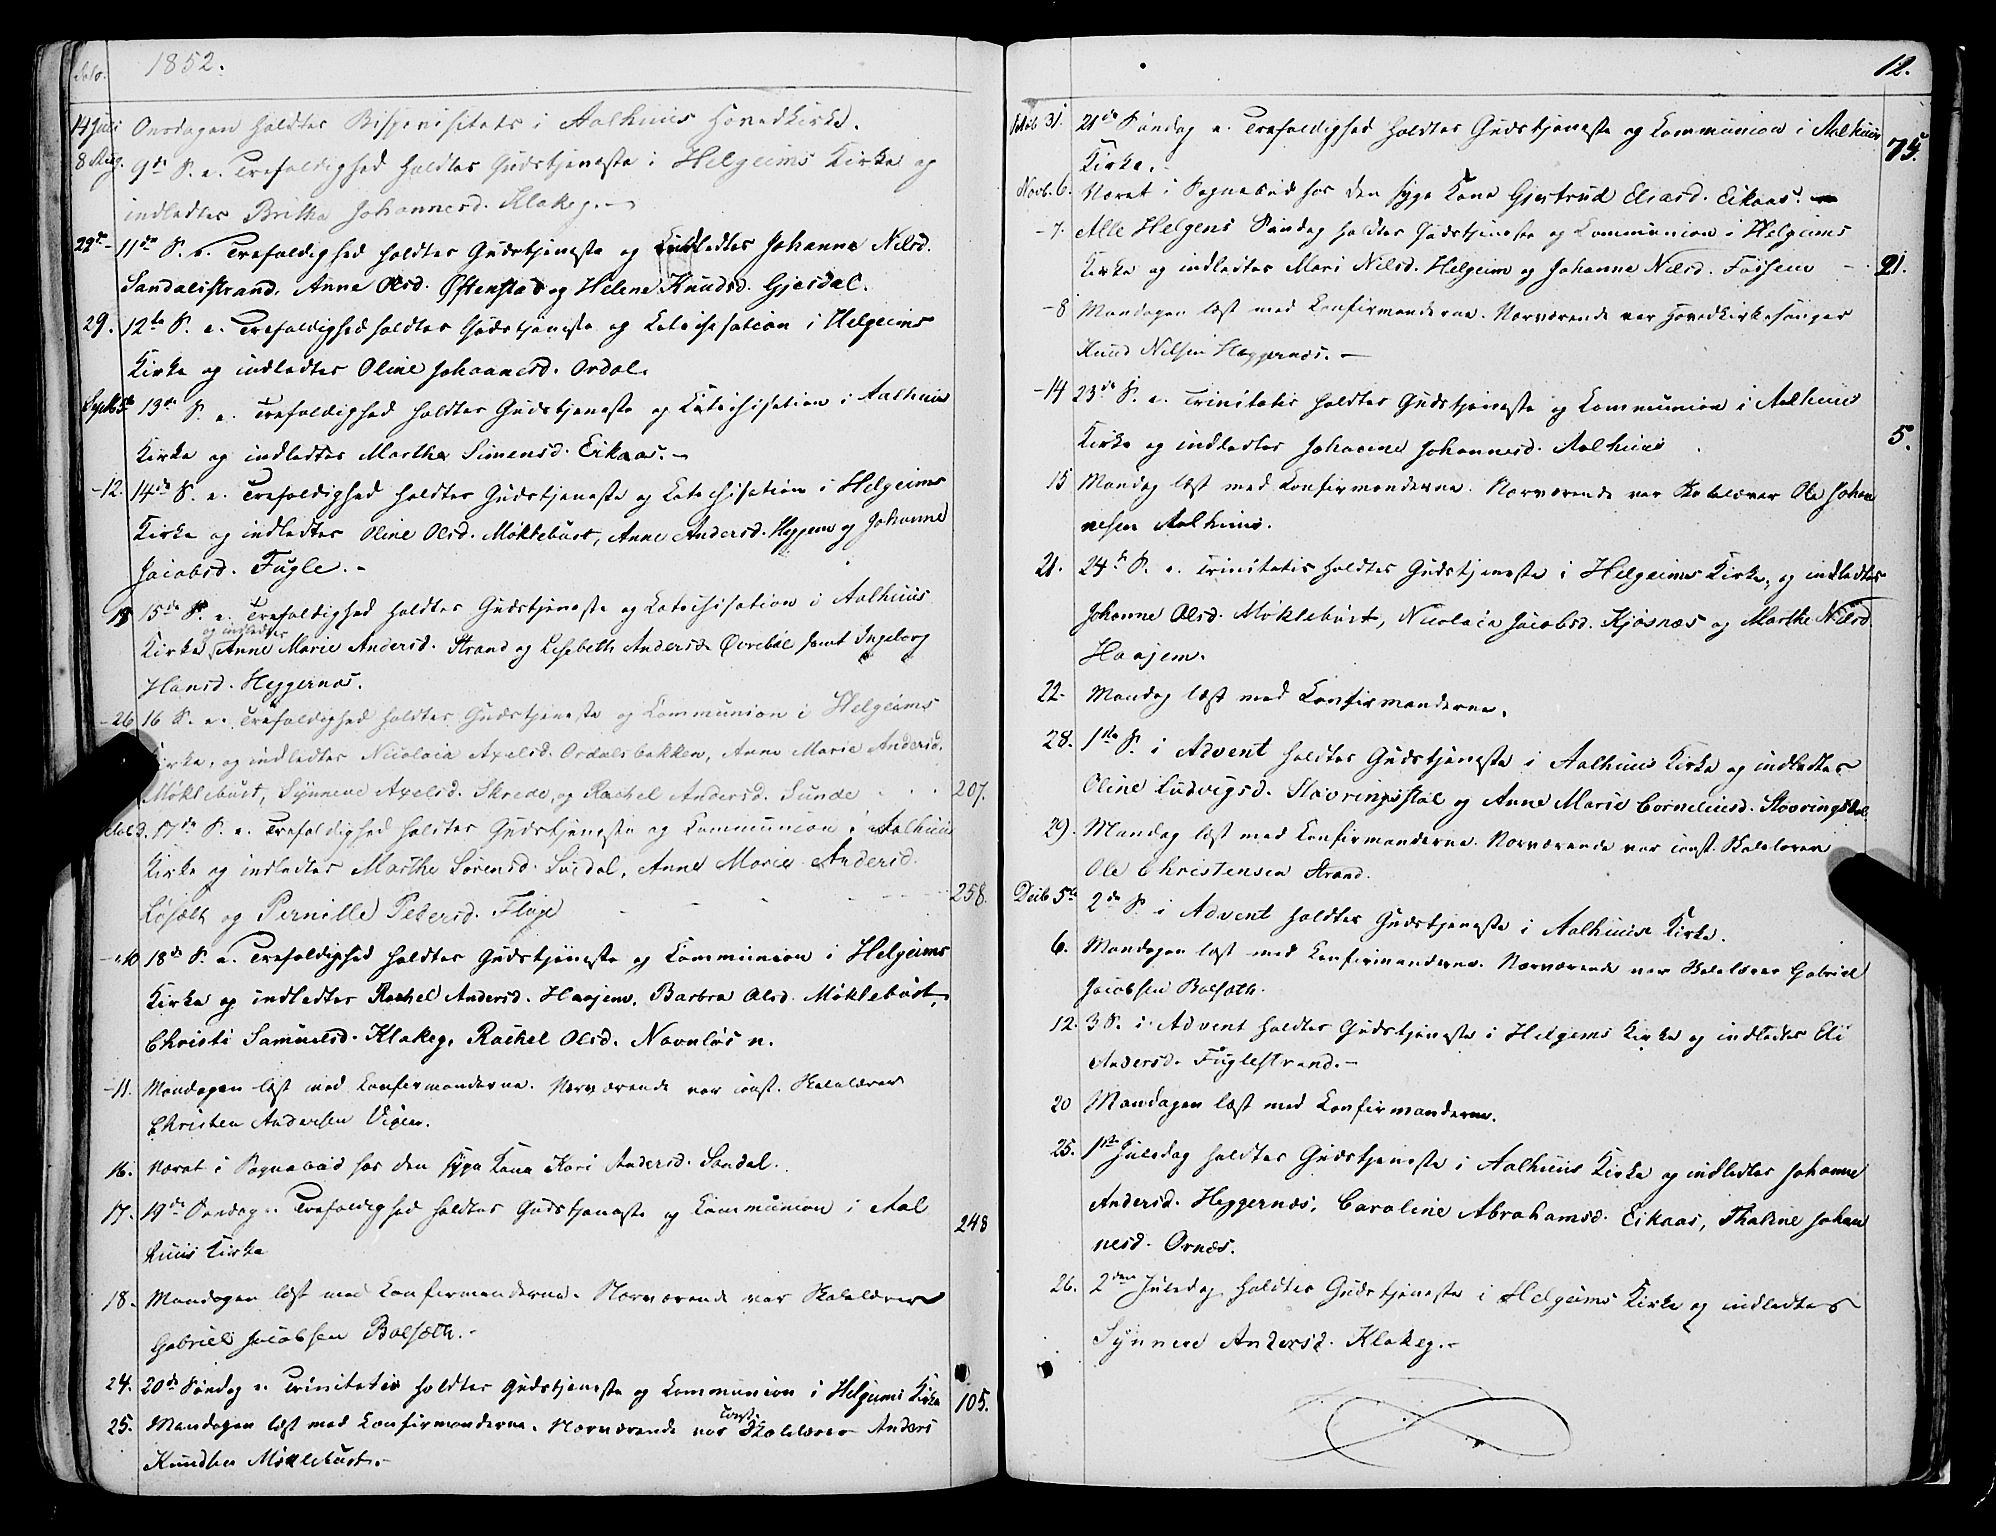 1852.
14 Juli Onsdagen holdtes Bispevisitats i Aalhuus Hovedkirke.
8 Aug. 9de S. e. Trefoldighed holdtes Gudstjeneste i Helgeims Kirke og
indledtes Britha Johannesd. Klakeg. -
22de - 11de S. e. Trefoldighed holdtes Gudstjeneste og indledtes Johanne Nilsd.
Sandalsstrand, Anne Olsd. Øftenstad og Helene Knudsd. Gjesdal.
29. 12te S. e. Trefoldighed holdtes Gudstjeneste og Catechisation i Helgeims
Kirke og indledtes Oline Johannesd. Ordal.
Septb 5te 13de S. e. Trefoldighed holdtes Gudstjeneste og Catechisation i Aalhuus
Kirke og indledtes Marthe Simensd. Eikaas. -
- 12. 14de S. e. Trefoldighed holdtes Gudstjeneste og Catechisation i Helgeims
Kirke og indledtes Oline Olsd. Møklebust, Anne Andersd. Heggem og Johanne
Jacobsd. Fugle. -
19 15de S. e. Trefoldighed holdtes Gudstjeneste og Catechisation i Aalhuus
og indledtes
Kirke Anne Marie Andersd. Strand og Lisebeth Andersd. Øvrebøe samt Ingeborg
Hansd. Heggernæs.
- 26 16 S. e. Trefoldighed holdtes Gudstjeneste og Communion i Helgeims
Kirke, og indledtes Nicolaia Axelsd. Ordalsbakken, Anne Marie Andersd.
Møklebust, Synneve Axelsd. Skrede, og Rachel Andersd. Sunde . . . 207.
17de S. e. Trefoldighed holdtes Gudstjeneste og Communion i Aalhuus
Kirke og indledtes Marthe Sørensd. Søgdal, Anne Marie Andersd.
Løsæth og Pernille Pedersd. Fluge 258.
- 10 18de S. e. Trefoldighed holdtes Gudstjeneste og Communion i Helgeims
Kirke og indledtes Rachel Andersd. Haajem, Barbra Olsd. Møklebust,
Christi Samuelsd. Klakeg, Rachel Olsd. Navnløs n.
- 11. Mandagen læst med Confirmanderne. Nærværende var const. Skolelærer
Christen Andersen Vigen.
16. Været i Sognebud hos den syge Kone Kari Andersd. Sandal.
17. 19de Søndag e. Trefoldighed holdtes Gudstjeneste og Communion i Aal
huus Kirke 248
18. Mandagen læst med Confirmanderne. Nærværende var Skolelærer
Gabriel Jacobsen Bolsæth. -
24. 20de Søndag e. Trinitatis holdtes Gudstjeneste og Communion i Helgeims Kirke 105.
const.
25. Mandagen læst med Confirmanderne. Nærværende var Skolelærer Anders
Knudsen Møklebust. -
12.
Octob 31. 21de Søndag e. Trefoldighed holdtes Gudstjeneste og Communion i Aalhuus
Kirke. 75.
Novb. 6. Været i Sognebud hos den syge Kone Gjertrud Eliasd. Eikaas. -
- 7. Alle Helgens Søndag holdtes Gudstjeneste og Communion i Helgeims
Kirke og indledtes Mari Nilsd. Helgeim og Johanne Nilsd. Fossem - 21.
- 8 Mandagen læst med Confirmanderne. Nærværende var Hovedkirkesanger
Knud Nilsen Heggernæs. -
- 14 23de S. e. Trinitatis holdtes Gudstjeneste og Communion i Aalhuus
Kirke og indledtes Johanne Johannesd. Aalhuus 5.
15 Mandag læst med Confirmanderne. Nærværende var Skolelærer Ole Johan
nesen Aalhuus.
21. 24de S. e. Trinitatis holdtes Gudstjeneste i Helgeims Kirke, og indledtes
Johanne Olsd. Møklebust, Nicolaia Jacobsd. Kjøsnæs og Marthe Nilsd
Haajem.
22. Mandag læst med Confirmanderne.
28. 1ste S. i Advent holdtes Gudstjeneste i Aalhuus Kirke og indledtes
Oline Ludvigsd. Støvringsstøl og Anne Marie Corneliusd. Støvringstøl.
29. Mandag læst med Confirmanderne. Nærværende var const. Skolelærer
Ole Christensen Strand.
Decb 5te 2de S. i Advent holdtes Gudstjeneste i Aalhuus Kirke.
6. Mandagen læst med Confirmanderne. Nærværende var Skolelærer Gabriel
Jacobsen Bolsæth.
12. 3 S. i Advent holdtes Gudstjeneste i Helgems Kirke og indledtes Eli
Andersd. Fuglestrand. -
20 Mandagen læst med Confirmanderne.
25. 1ste Juledag holdtes Gudstjeneste i Aalhuus Kirke og indledtes Johanne
Andersd. Heggernæs, Caroline Abrahamsd. Eikaas, Thaline Johan
nesd. Ornæs.
26. 2den Juledag holdtes Gudstjeneste i Helgeims Kirke og indledtes
Synneve Andersd. Klakeg. -